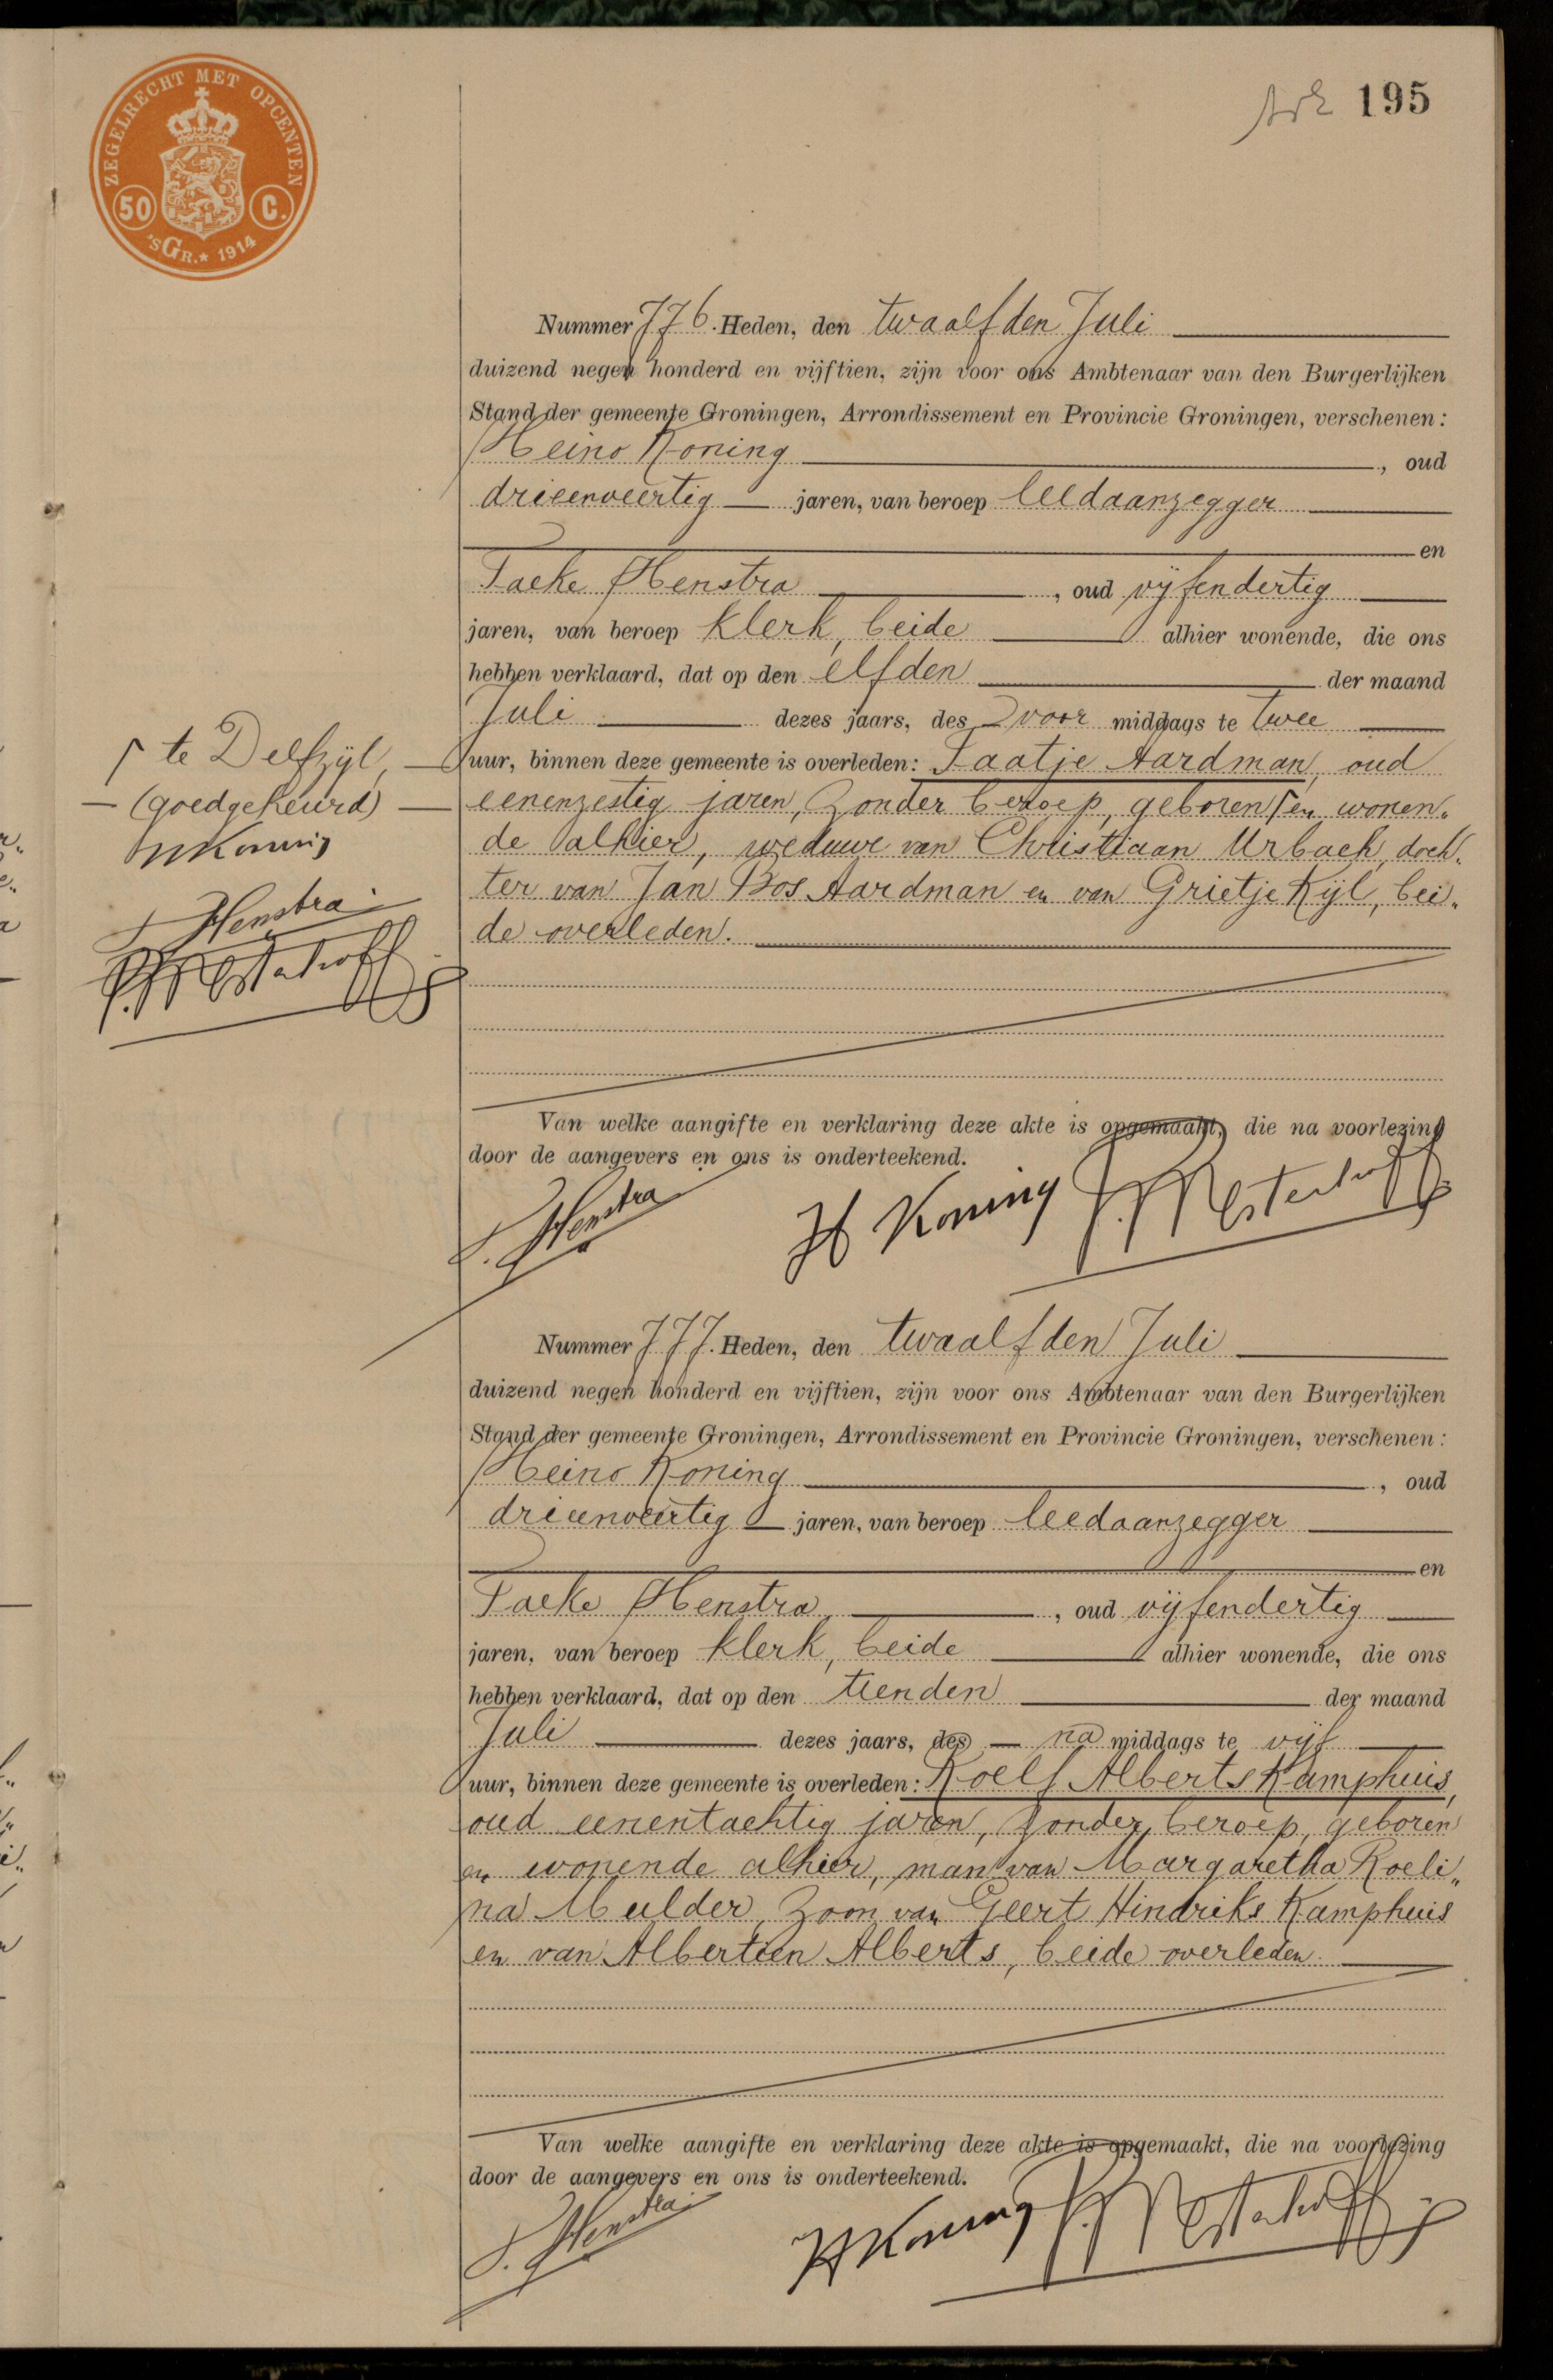 ZEGELRECHT MET OPCENTEN
50 C.
'SGR.* 1914
195
Nummer 776. Heden, den twaalfden Juli
duizend negen honderd en vijftien, zijn voor ons Ambtenaar van den Burgerlijken
Stand der gemeente Groningen, Arrondissement en Provincie Groningen, verschenen:
Heino Koning, oud
drieenveertig jaren, van beroep leedaanzegger
en
Taeke Henstra, oud vijfendertig
jaren, van beroep klerk, beide alhier wonende, die ons
hebben verklaard, dat op den elfden der maand
Juli dezes jaars, des voor middags te twee
uur, binnen deze gemeente is overleden: Taatje Aardman, oud
eenenzestig jaren, zonder beroep, geboren ⌈ en wonen„
de alhier, weduwe van Christiaan Urbach, doch„
ter van Jan Bos Aardman en van Grietje Kijl, bei„
de overleden.
⌈ te Delfzijl,
(goedgekeurd)
HKoning
T Henstra
Van welke aangifte en verklaring deze akte is opgemaakt, die na voorlezing
door de aangevers en ons is onderteekend.
T. Henstra H Koning
Nummer 777. Heden, den twaalfden Juli
duizend negen honderd en vijftien, zijn voor ons Ambtenaar van den Burgerlijken
Stand der gemeente Groningen, Arrondissement en Provincie Groningen, verschenen:
Heino Koning, oud
drieenveertig jaren, van beroep leedaanzegger
en
Taeke Henstra, oud vijfendertig
jaren, van beroep klerk, beide alhier wonende, die ons
hebben verklaard, dat op den tienden der maand
Juli dezes jaars, des na middags te vijf
uur, binnen deze gemeente is overleden: Roelf Alberts Kamphuis,
oud eenentachtig jaren, zonder beroep, geboren
en wonende alhier, man van Margaretha Roeli„
na Mulder, zoon van Geert Hindriks Kamphuis
en van Albertien Alberts, beide overleden.
Van welke aangifte en verklaring deze akte is opgemaakt, die na voorlezing
door de aangevers en ons is onderteekend.
T. Henstra HKoning